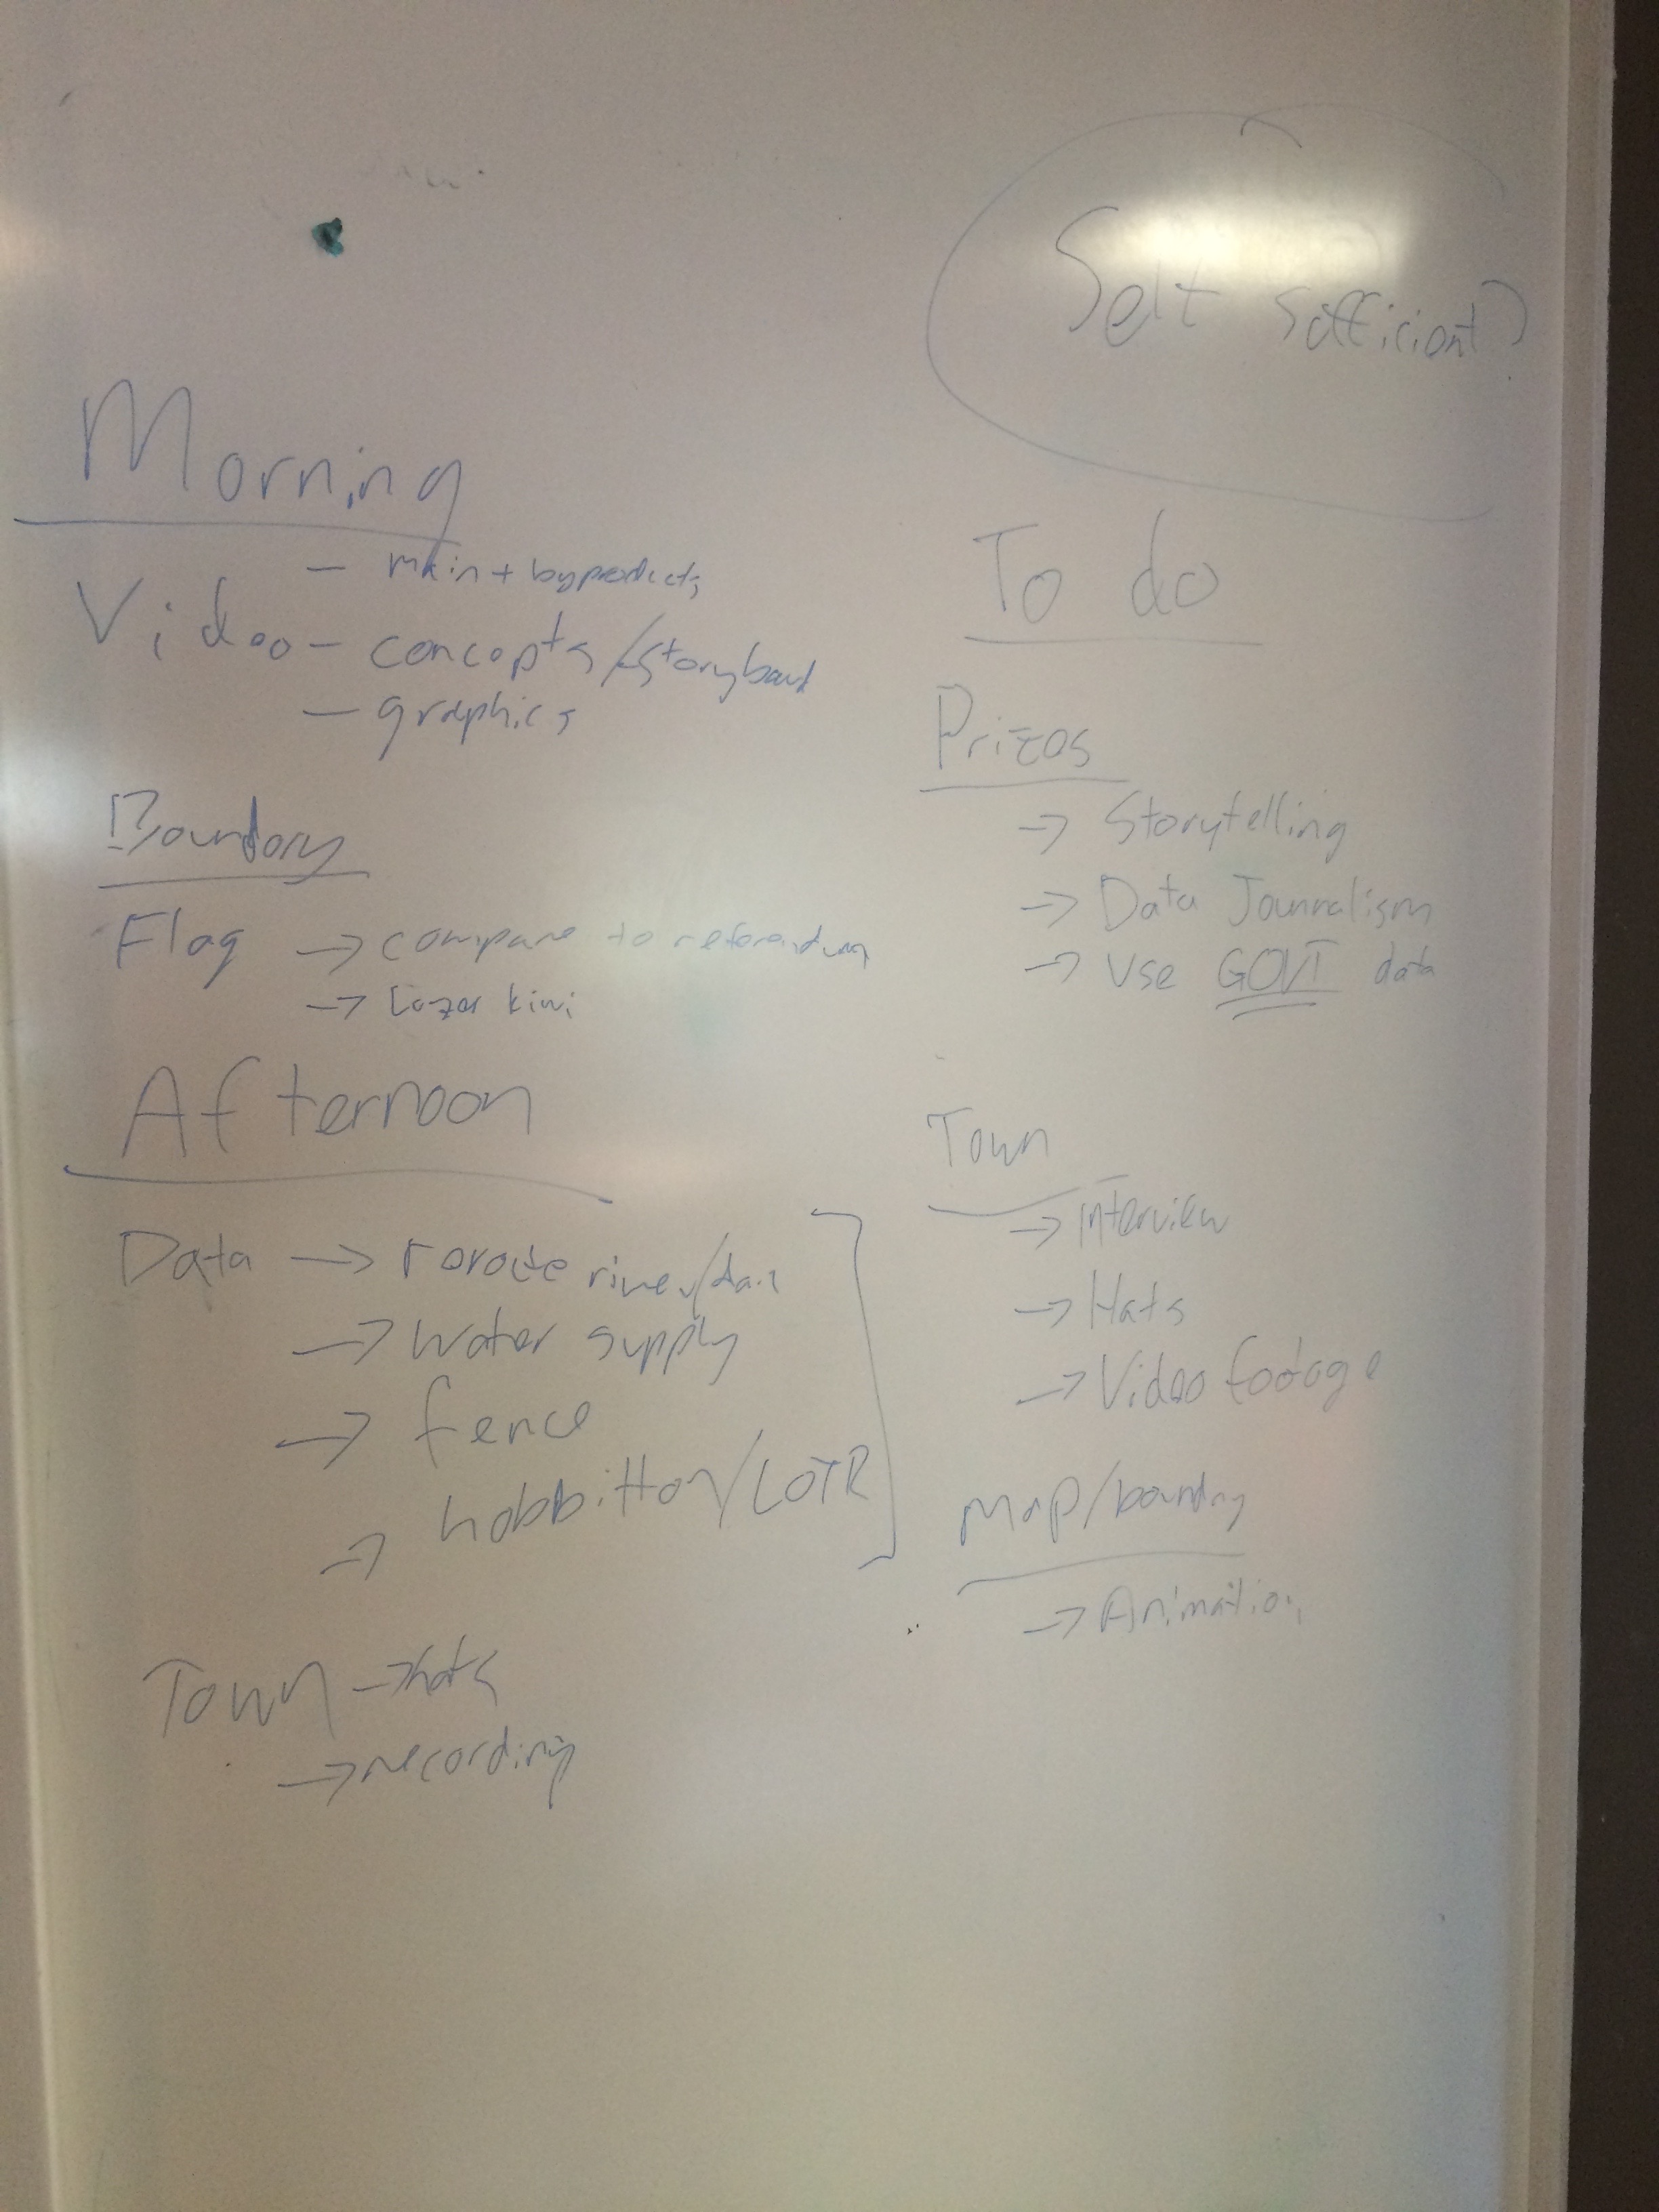 Self sufficient?
Morning
- main + byproducts
Video - concepts/storyboard
- graphics
Boundary
Flag → compare to referendum
→ Lazer kiwi
Afternoon
Data → reroute river/
→ water supply
→ fence
→ hobbitton/LOTR
Town → hats
→ recording
To do
Prizes
→ Storytelling
→ Data Journalism
→ Use GOVT data
Town
→ Interview
→ Hats
→ Video footage
Map/boundry
→ Animation